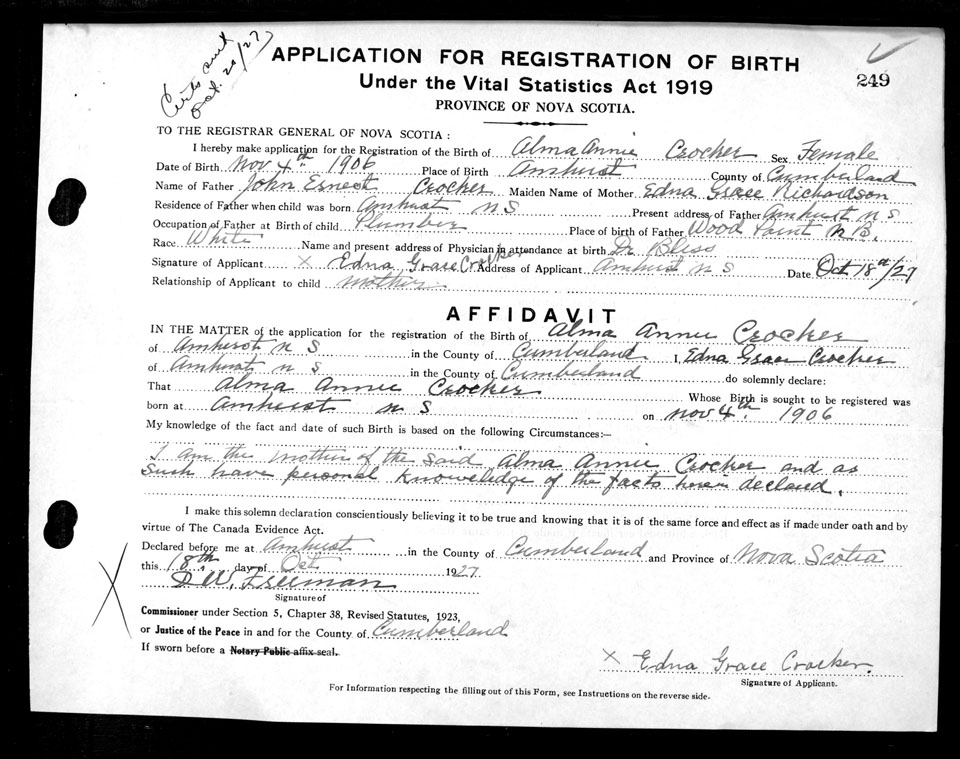 Certs sent
Oct. 20/27
249
APPLICATION FOR REGISTRATION OF BIRTH
Under the Vital Statistics Act 1919
PROVINCE OF NOVA SCOTIA.
TO THE REGISTRAR GENERAL OF NOVA SCOTIA:
I hereby make application for the Registration of the Birth of Alma Annie Crocker Sex Female
Date of Birth Nov 4th 1906 Place of Birth Amhurst County of Cumberland
Name of Father John Ernest Crocker Maiden Name of Mother Edna Grace Richardson
Residence of Father when child was born Amhurst N S Present address of Father Amhurst N S
Occupation of Father at Birth of child Plumber Place of birth of Father Wood Point N B.
Race White Name and present address of Physician in attendance at birth Dr Bliss
Signature of Applicant X Edna Grace Crocker Address of Applicant Amhurst N S Date Oct 18th/27
Relationship of Applicant to child mother
AFFIDAVIT
IN THE MATTER of the application for the registration of the Birth of Alma Annie Crocker
of Amherst N S in the County of Cumberland I, Edna Grace Crocker
of Amhurst N S in the County of Cumberland do solemnly declare:
That Alma Annie Crocker Whose Birth is sought to be registered was
born at Amhurst N S on Nov 4th. 1906
My knowledge of the fact and date of such Birth is based on the following Circumstances:—
I am the mother of the said Alma Annie Crocker and as
such have personal knowledge of the facts herein declared.
I make this solemn declaration conscientiously believing it to be true and knowing that it is of the same force and effect as if made under oath and by
virtue of The Canada Evidence Act.
Declared before me at Amhurst in the County of Cumberland and Province of Nova Scotia
this 18th day of Oct 1927
D W. Freeman
Signature of
Commissioner under Section 5, Chapter 38, Revised Statutes, 1923,
or Justice of the Peace in and for the County of Cumberland
If sworn before a Notary Public affix seal.
X Edna Grace Crocker.
Signature of Applicant.
For Information respecting the filling out of this Form, see Instructions on the reverse side.